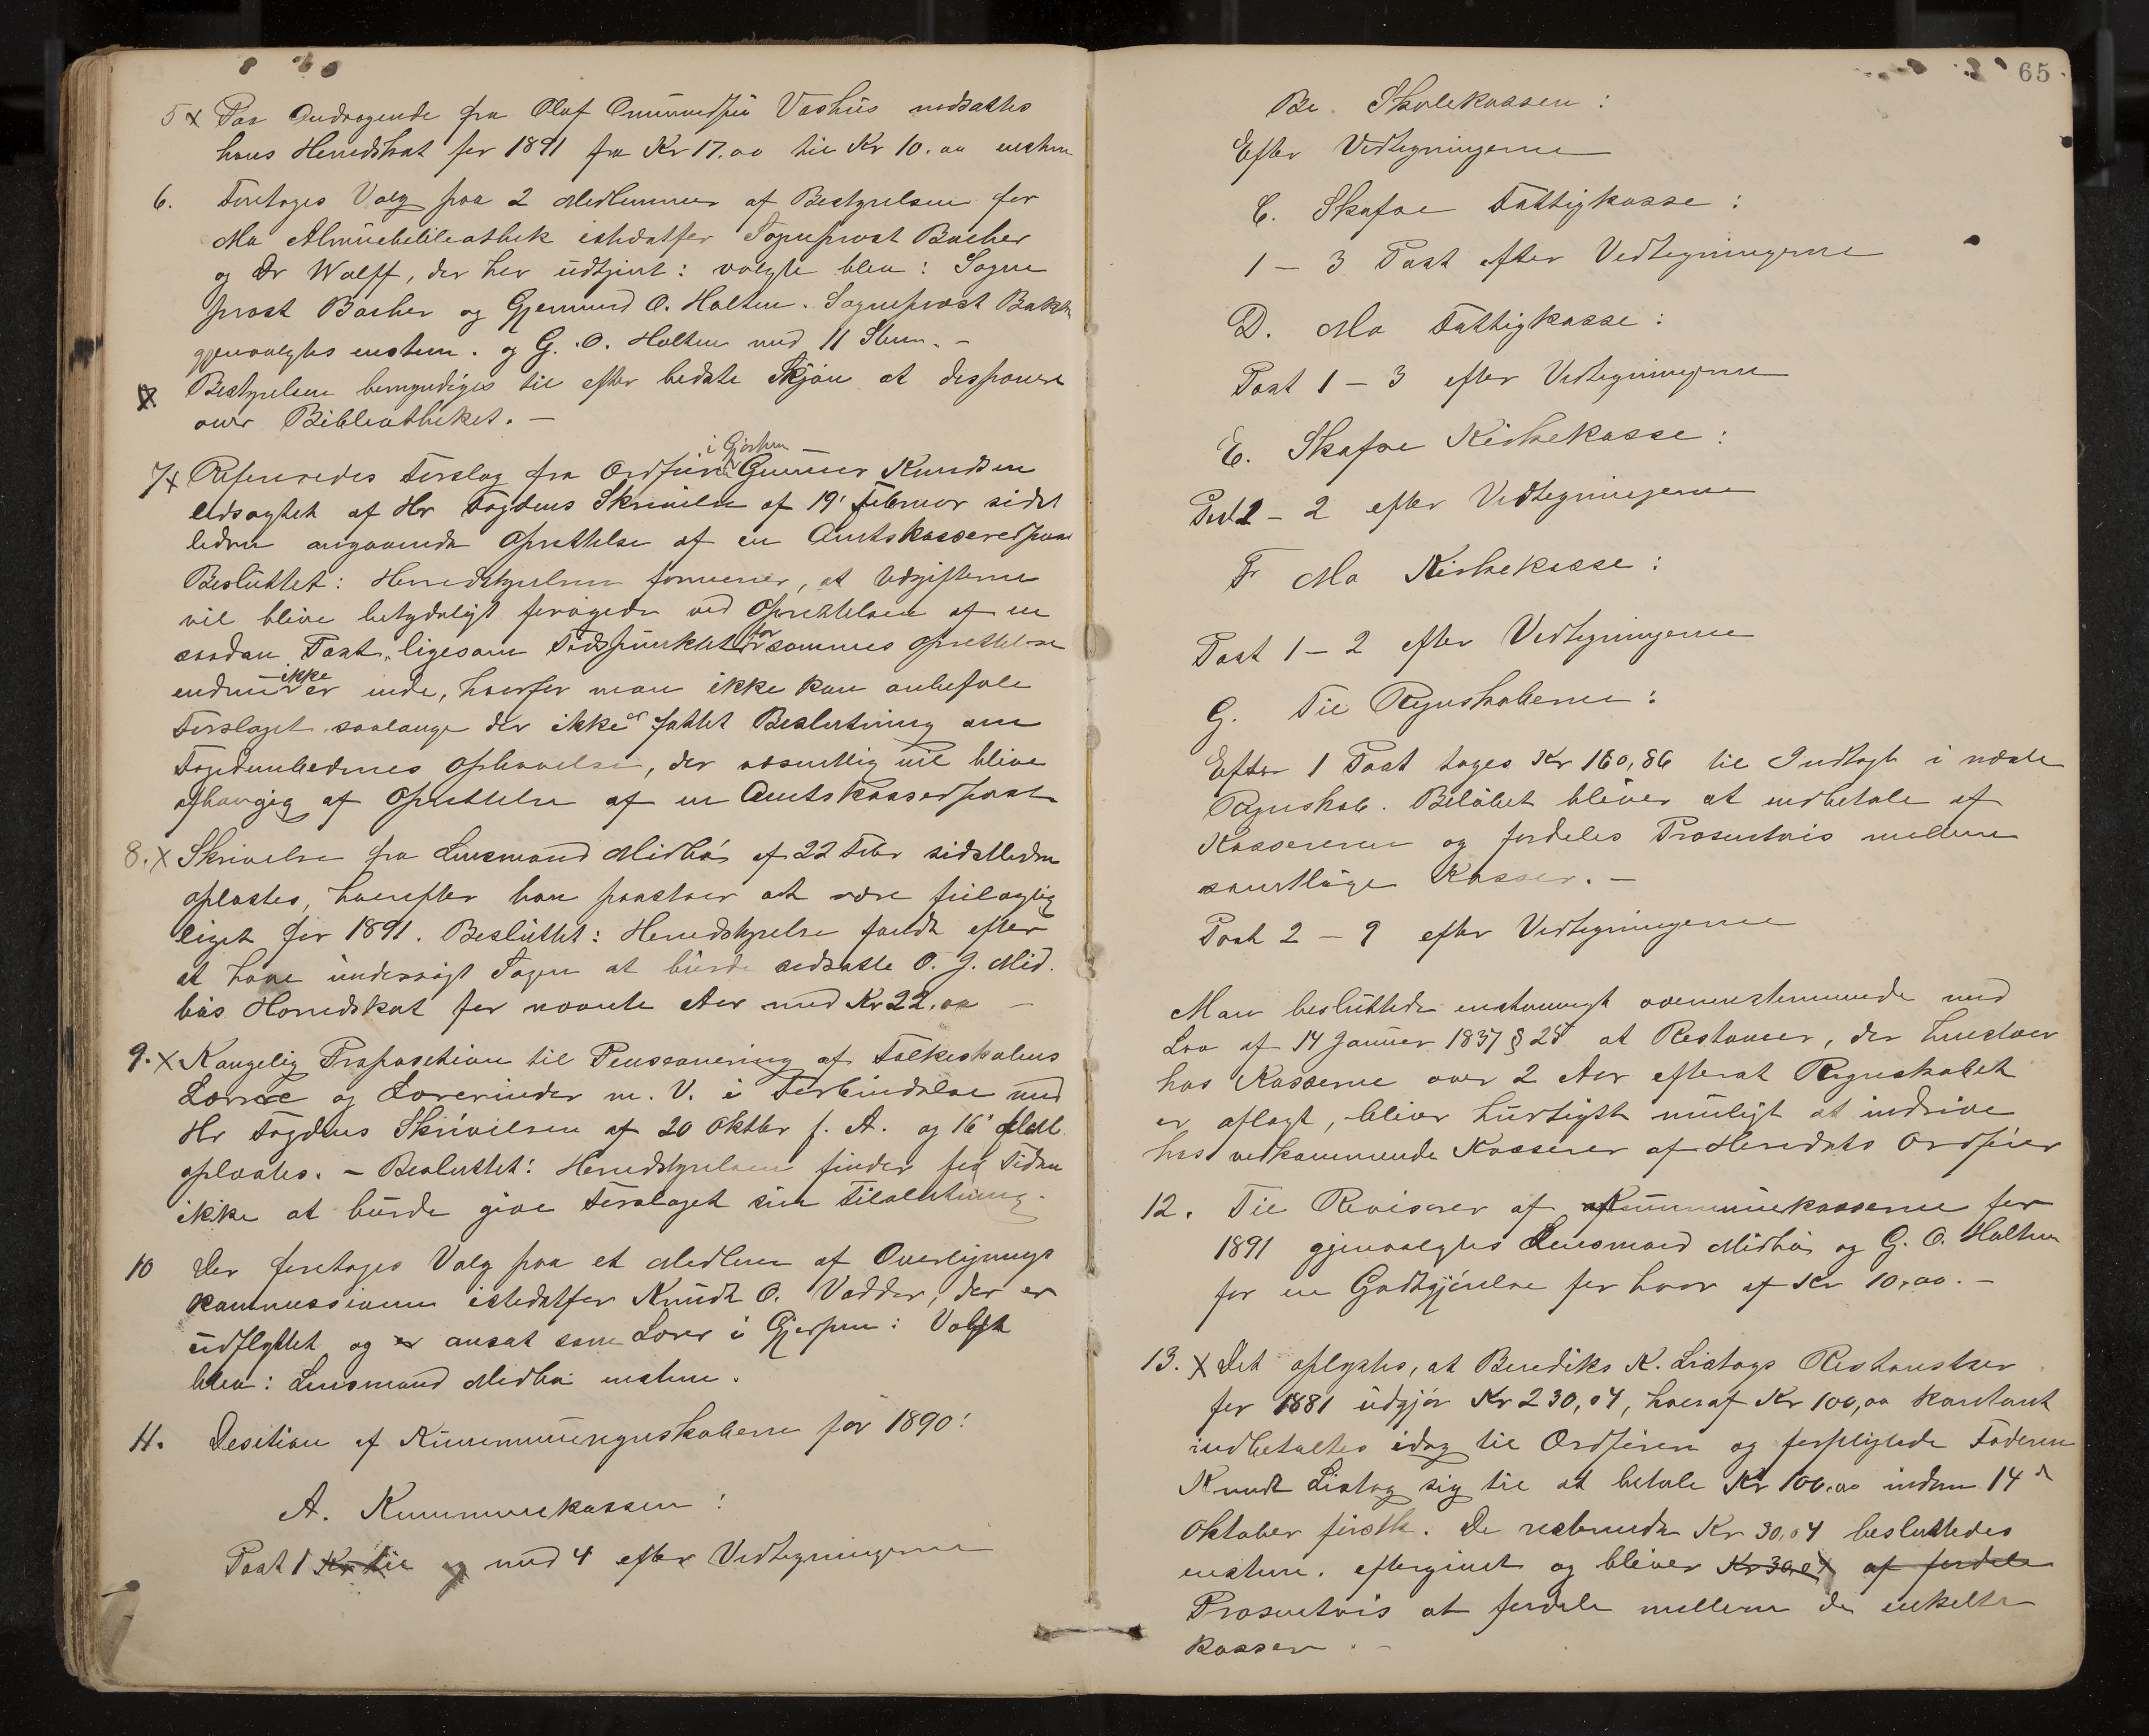 5 x Paa Andragende fra Oluf Ommundsen Vashus nedsattes
hans Herredskat for 1891 fra Kr 17.00 til Kr 10.00 enstem
6. Foretoges Valg paa 2 Medlemmer af Bestyrelsen for
Mo Almuebibliothek istedetfor Sogneprost Bacher
og Dr Wolff, der her udtjent: valgte blev: Sogne
prost Bacher og Gjermund O. Holten. Sogneprost Bakke
gjenvalgtes enstem. og G. O. Holten med 11 Stem. -
x. Bestyrelsen bemyndiges til efter bedste Skjøn at disponere
over Bibliotheket. -
7 x Refereredes Forslag fra Ordfører i Gjerpen Gunnar Knudsen
ledsaget af Hr Fogdens Skrivelse af 19' Februar sidst
leden angaaende Oprettelse af en Amtskassererpost
Besluttet: Herredstyrelsen formener, at Udgifterne
vil blive betydeligt forøgede ved Oprettelsen af en
saadan Post, ligesom Tidspunktet for sammes Oprettelse
endnu ikke er inde, hvorfor man ikke kan anbefale
Forslaget saalænge der ikke er fattet Beslutning om
Fogdembedernes Ophævelse, der væsentlig vil blive
afhængig af Oprettelse af en Amtskassererpost
8. x Skrivelse fra Lensmand Midbø af 22 Febr sidstleden
oplæstes, hvorefter han paastaar at være feilagtig
liget for 1891. Besluttet: Herredstyrelse fandt efter
at have undersøgt Sagen at burde nedsætte O. J. Mid.
bøs Herredskat for nævnte Aar med Kr 22.00 -
9. x Kongelig Proposition til Pensionering af Folkeskolens
Lærere og Lærerinder m. V. i Forbindelse med
Hr Fogdens Skrivelser af 20 Oktbr f. A. og 16'
oplæstes. - Besluttet: Herredstyrelsen finder for Tiden
ikke at burde give Forslaget sin Tilslutning.
10 Der foretoges Valg paa et Medlem af Overlignings
kommissionen istedetfor Knudt O. Vadder, der er
udflyttet og er ansat som Lærer i Gjerpen: Valgt
blev: Lensmand Midbø enstem.
11. Desition af Kummuneregnskaberne for 1890:
A. Kummunekassen:
Post 1 Kr til og med 4 efter Vedtegningerne
65
Be. Skolekassen:
Efter Vedtegningerne
C. Skafsae Fattigkasse:
1 - 3 Post efter Vedtegningerne
D. Mo Fattigkasse:
Post 1 - 3 efter Vedtegningerne
E. Skafsae Kirkekasse:
Post 1 - 2 efter Vedtegningerne
F Mo Kirkekasse:
Post 1 - 2 efter Vedtegningerne
G. Til Regnskaberne:
Efter 1 Post tages Kr 160,86 til Indtægt i næste
Regnskab. Beløbet bliver at indbetale af
Kassereren og fordeles Prosentvis mellem
samtlige Kasser. -
Post 2 - 9 efter Vedtegningerne
Man besluttede enstemmigt overensstemmende med
Lov af 14 Januar 1837 § 28 at Restancer, der henstaar
hos Kasserne over 2 Aar efterat Regnskabet
er aflagt, bliver hurtigst muligt at indrive
hos vedkommende Kasserer af Herredets Ordfører
12. Til Revisorer af Kummunekasserne for
1891 gjenvalgtes Lensmand Midbø og G. O. Holten
for en Godtgjørelse for hver af Kr 10,00. -
13. x Det oplystes, at Bendiks K. Listogs Restanser
for 1881 udgjør Kr 230,04, hvoraf Kr 100,00 kontant
indbetaltes idag til Ordføren og forpligtede Faderen
Knudt Listog sig til at betale Kr 100.00 inden 14 d
Oktober førstk. De resterende Kr 30,04 besluttedes
enstem. eftergivet og bliver Kr 30,04 at fordele
Prosentvis at fordele mellem de enkelte
Kasser. -